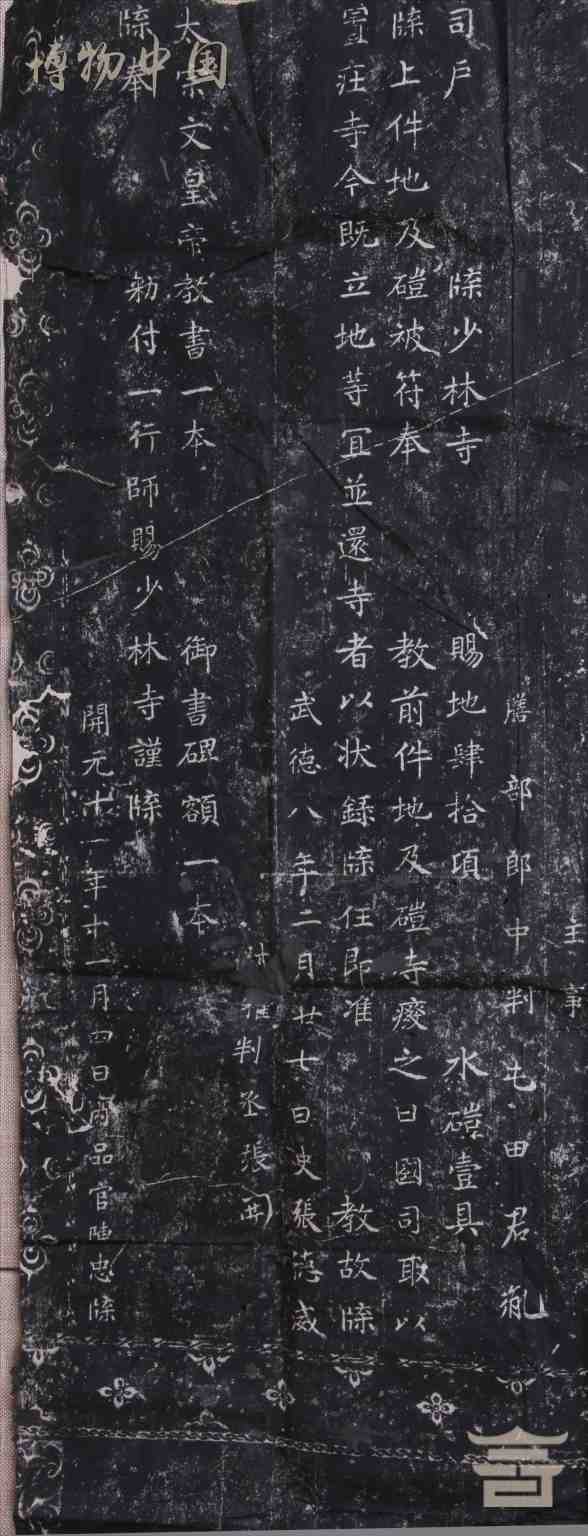 博物中国
主事
膳部郎中判屯田君胤
司戶 牒少林寺 賜地肆拾頃 水磑壹具
牒上件地及磑被符奉 教前件地及磑寺癈之日國司取以
置莊寺今既立地等宜並還寺者以狀錄牒任即准 教故牒
武德八年二月廿七日史張德威
判丞張開
太宗文皇帝教書一本 御書碑額一本
牒奉 勑付一行師賜少林寺謹牒
開元十一年十一月四日內品官陳忠牒